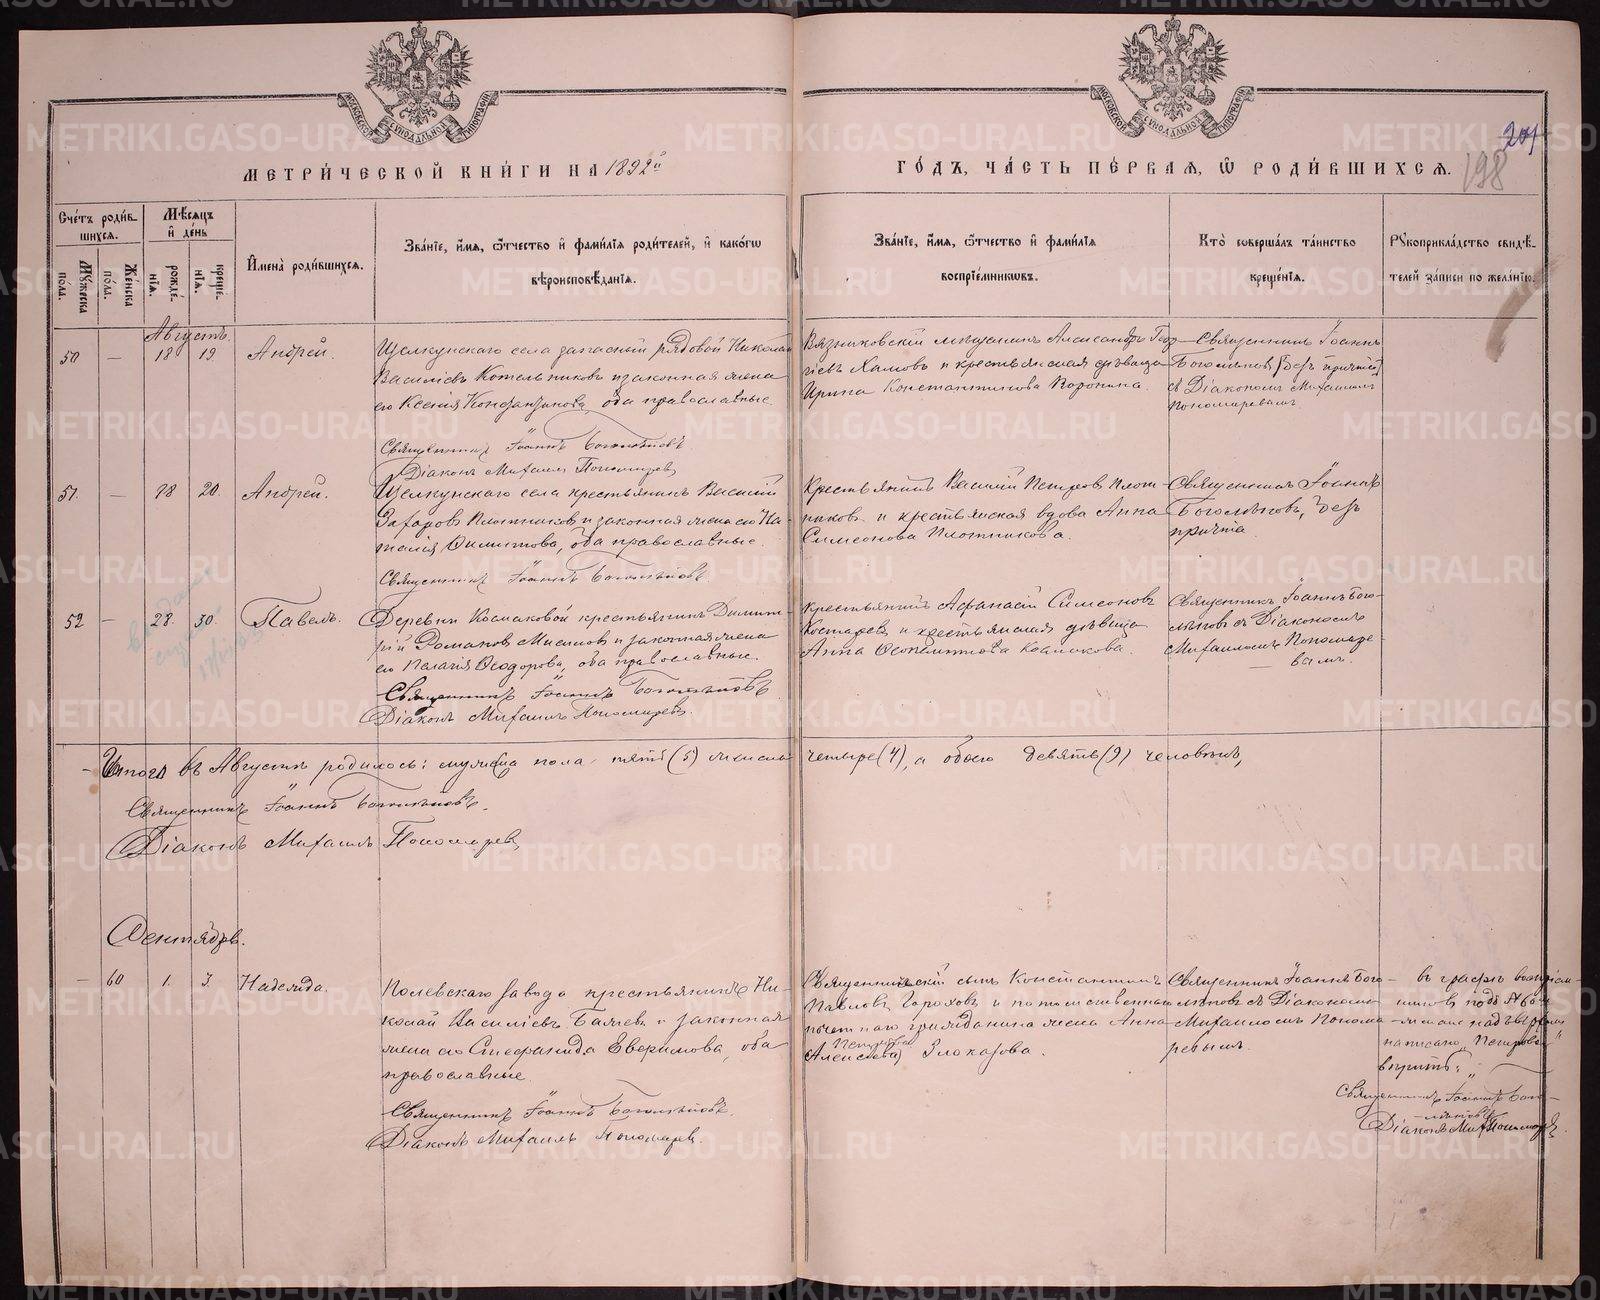 МОСКОВСКОЙ СѴНОДАЛЬНОЙ ТИПОГРАФІИ
МОСКОВСКОЙ СѴНОДАЛЬНОЙ ТИПОГРАФІИ
МЕТРИ́ЧЕСКОЙ КНИ́ГИ НА 1892й
ГО́ДЪ, ЧА́СТЬ ПЕ́РВАЯ, Ѿ РОДИ́ВШИХСЯ.
201
198
Сче́тъ роди́в-
шихся.
Мѣ́сяцъ
и҆ де́нь
Му́жеска по́ла.
Же́нска по́ла.
рожде́-
нїя.
креще́-
нїя.
И҆мена̀ роди́вшихся.
Зва́нїе, и҆́мя, ѻ҆́тчество и҆ фами́лїя роди́телей, и҆ како́гѡ
вѣроисповѣ́данїя.
Зва́нїе, и҆́мя, ѻ҆́тчество и҆ фами́лїя
воспрїе́мникѡвъ.
Кто̀ соверша́лъ та́инство
креще́нїя.
Рꙋкоприкла́дство свидѣ́-
телей за́писи по жела́нїю.
Августъ.
50 — 18 19 Андрей.
Щелкунскаго села запасный рядовой Николай
Василіевъ Котельниковъ и законная жена
его Ксенія Константинова, оба православные.
Священникъ Іоаннъ Боголѣповъ
Діаконъ Михаилъ Пономаревъ
Вязниковскій мѣщанинъ Александръ Геор-
гіевъ Хамовъ и крестьянская дѣвица
Ирина Константинова Воронина.
Священникъ Іоаннъ
Боголѣповъ
съ Діакономъ Михаиломъ
Пономаревымъ
51 — 18 20. Андрей.
Щелкунскаго села крестьянинъ Василій
Захаровъ Плотниковъ и законная жена его На-
талія Филиппова, оба православные.
Священникъ Іоаннъ Боголѣповъ.
Крестьянинъ Василій Петровъ Плот-
никовъ и крестьянская вдова Анна
Симеонова Плотникова.
Священникъ Іоаннъ
Боголѣповъ, безъ
причта
52 — 28 30. Павелъ.
Деревни Космаковой крестьянинъ Димит-
рій Романовъ и законная жена
его Пелагія Ѳеодорова, оба православные.
Священникъ Іоаннъ Боголѣповъ
Діаконъ Михаилъ Пономаревъ.
крестьянинъ Афанасій Симеоновъ
Костаревъ и крестьянская дѣвица
Анна Космакова.
Священникъ Іоаннъ Бого-
лѣповъ съ Діакономъ
Михаиломъ Пономаре-
вымъ.
Итого въ Августѣ родилось: мужеска пола пять (5) женска четыре (4), а обоего девять (9) человѣкъ,
Священникъ Іоаннъ Боголѣповъ.
Діаконъ Михаилъ Пономаревъ
Сентябрь.
— 60 1. 3. Надежда.
Полевскаго завода крестьянинъ Ни-
колай Василіевъ и законная
жена его Стефанида Евфимова, оба
православные.
Священникъ Іоаннъ Боголѣповъ.
Діаконъ Михаилъ Пономаревъ.
Священническій сынъ Константинъ
Павловъ Гороховъ и потомственнаго
почетнаго гражданина жена Анна
Петрова
Алексѣева Злоказова.
Священникъ Іоаннъ Бого-
лѣповъ съ Діакономъ
Михаиломъ Понома-
ревымъ.
въ графѣ воспріем-
никовъ подъ № 60
написано „Петрова"
вѣрить.
Священникъ Іоаннъ Бого-
лѣповъ
Діаконъ Мих. Пономаревъ.